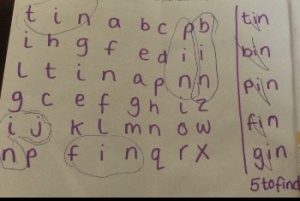 t i n a b c p b tin
i h g f e d i i bin
l t i n a p n n pin
g c e f g h i z fin
i j k l m n o w gin
n p f i n q r x
5 to find